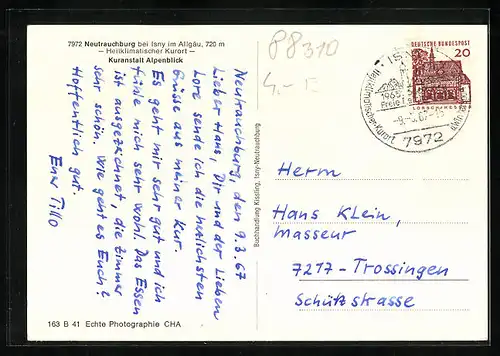 7972 Neutrauchburg bei Isny im Allgäu, 720 m
— Heilklimatischer Kurort —
Kuranstalt Alpenblick
Neutrauchburg, den 9.3.67
Lieber Hans, Dir und der Lieben
Lore sende ich die herzlichsten
Grüsse aus meiner Kur.
Es geht mir sehr gut und ich
fühle mich sehr wohl. Das Essen
ist ausgezeichnet, die Zimmer
sehr schön. Wie geht es Euch?
Hoffentlich gut.
Euer Tillo
163 B 41 Echte Photographie CHA
88310
4,- E
DEUTSCHE BUNDESPOST
20
LORSCH/HESSEN
Heilklimatischer Kurort
7972
Herrn
Hans Klein,
Masseur
7217-Trossingen
Schützstrasse